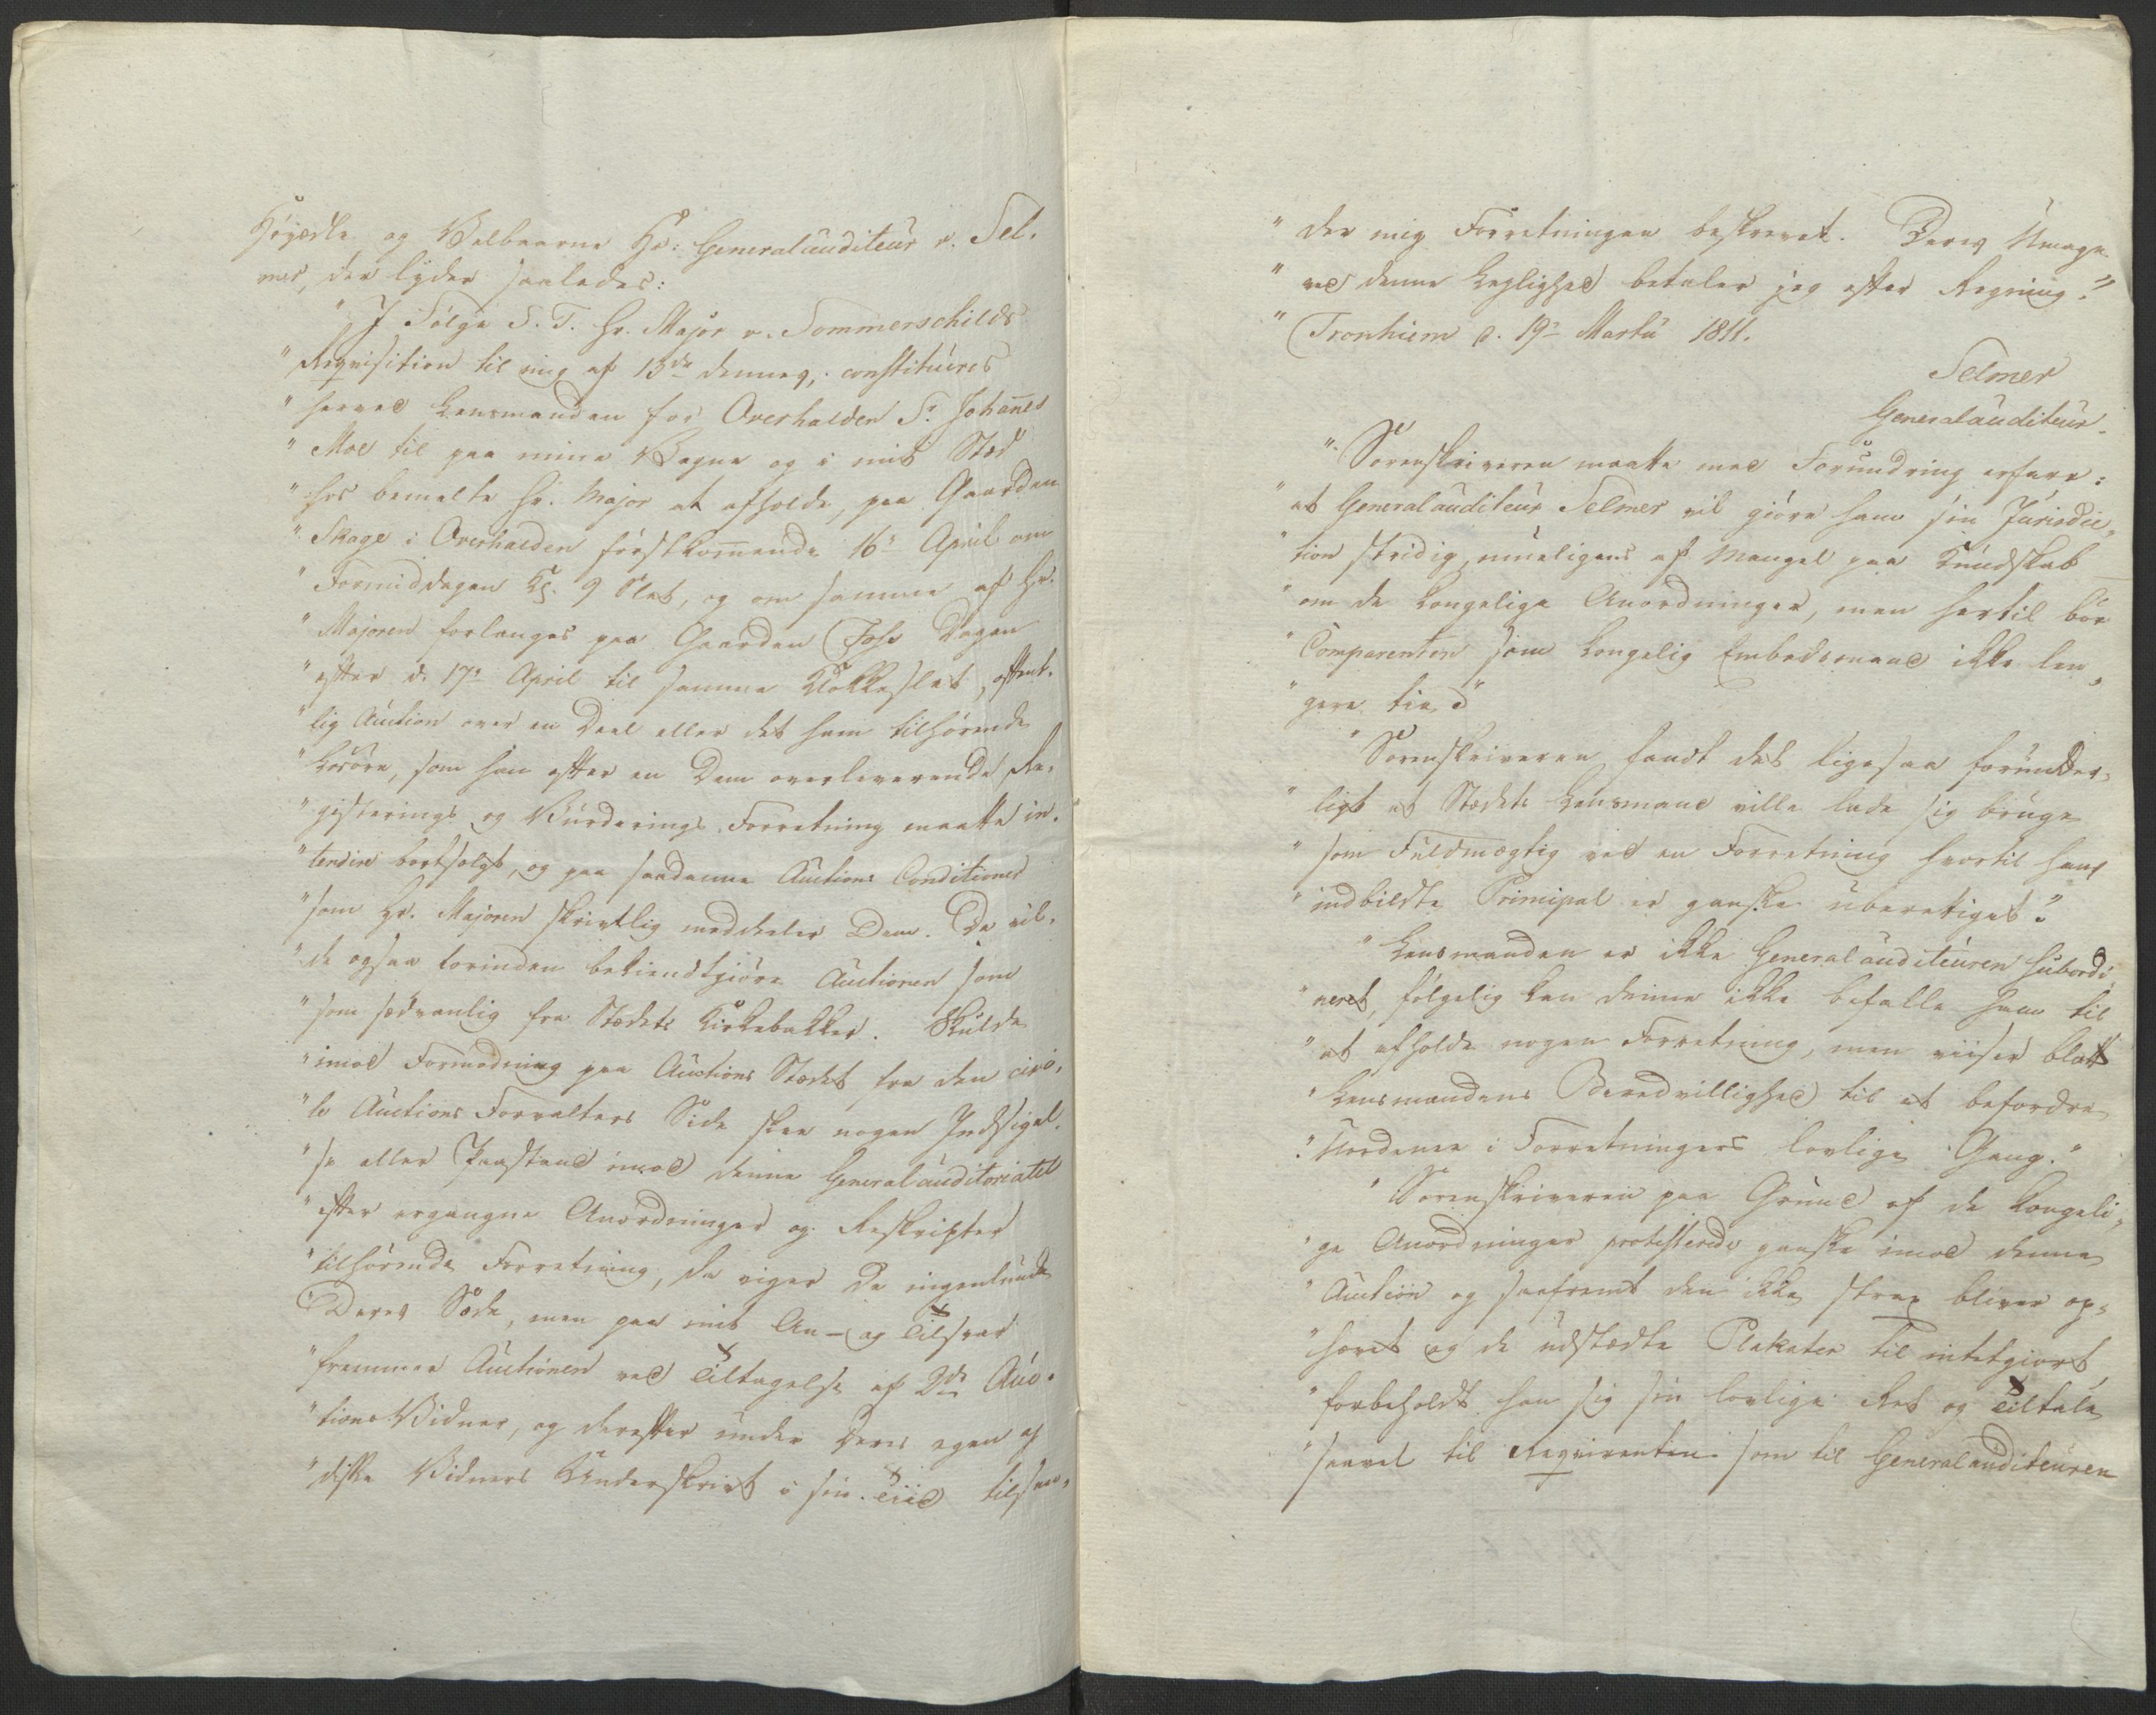 Höyædle og Velbaarne Hr: Generalauditeur v. Sel-
mer, der lyder saaledes:
" I Følge S. T. Hr. Major v. Sommerschilds
" Reqvisition til mig af 13de dennes, constitueres
" herved Lensmanden for Overhalden Sr. Johannes
" Moe til paa mine Vegne og i mit Sted
" hos bemelte Hr. Major at afholde, paa Gaarden
" Skage i Overhalden førstkommende 16de April om
" Formiddagen Kl. 9 Slet, og om samme af Hr.
" Majoren forlanges paa Gaarden Dagen
" efter d. 17de April til samme Klokkeslet, offent-
" lig Auction over en Deel eller det ham tilhørende
" Løsøre, som han efter en Dem overleverende Re-
" gisterings og Vurderings Forretning maatte in-
" tendire bortsolgt, og paa saadanne Auctions Conditioner
" som Hr. Majoren skrivtlig meddeeler Dem. De vil-
" de ogsaa forinden bekiendtgiøre Auctionen som
" som sædvanlig fra Stedets Kirkebakker. Skulde
" imod Formodning paa Auctions Stedet fra den civi-
" le Auctions Forvalters Side skee nogen Indsigel-
" se eller Paastand imod denne Generalauditoriatet
" efter ergangne Anordninger og Reskripter
" tilhørende Forretning, da viger De ingenlunde
" Deres Sæde, men paa mit An- og Tilsvar
" fremmer Auctionen ved Tiltagelse af 2de Auc-
" tions Vidner, og derefter under Deres egen og
" diske Vidners Underskrivt i sin Tiid tilstil-
" der mig Forretningen beskrevet. Deres Umage
" ved denne Leylighed betaler jeg efter Regning."
" Tronhiem d. 19de Martii 1811.
Selmer
Generalauditeur.
" Sorenskriveren maatte med Forundring erfare:
" at Generalauditeur Selmer vil giøre ham sin Jurisdic-
" tion stridig, mueligens af Mangel paa Kundskab
" om de Kongelige Anordninger, men hertil bør
" Comparenten som Kongelig Embedsmand ikke len-
" gere tie."
" Sorenskriveren fandt det ligesaa forunder-
" ligt at Stedets Lensmand ville lade sig bruge
" som Fuldmægtig ved en Forretning hvortil hans
" indbildte Principal er ganske uberettiget."
" Lensmanden er ikke Generalauditeuren subordi-
" neret, følgelig kan denne ikke befalle ham til
" at afholde nogen Forretning, men viiser blott
" Lensmandens Beredvillighed til at befordre
" Uordener i Forretningers lovlige Gang."
" Sorenskriveren paa Grund af de Kongeli-
" ge Anordninger protesterede ganske imod denne
" Auction og saafremt den ikke strax bliver op-
" hævet og de udstedte Plakater til intetgiort,
" forbeholdt han sig sin lovlige Ret og Tiltale
" saavel til Reqvirenten som til Generalauditeuren